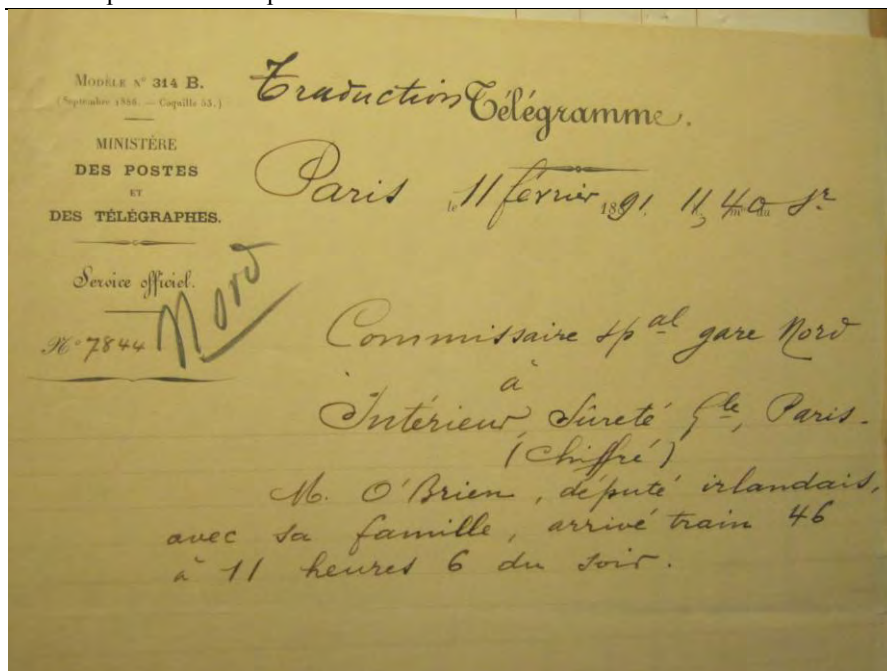 MODÈLE N° 314 B.
(Septembre 1886. — Coquille 55.)
MINISTÈRE
DES POSTES
ET
DES TÉLÉGRAPHES.
Service officiel.
N° 7844
Nord
Traduction Télégramme.
Paris le 11 février 1891. 11h 40 m du sr
Commissaire spal gare Nord
à
Intérieur, Sûreté Gle, Paris.
(Chiffré)
M. O'Brien, député irlandais,
avec sa famille, arrivé train 46
à 11 heures 6 du soir.